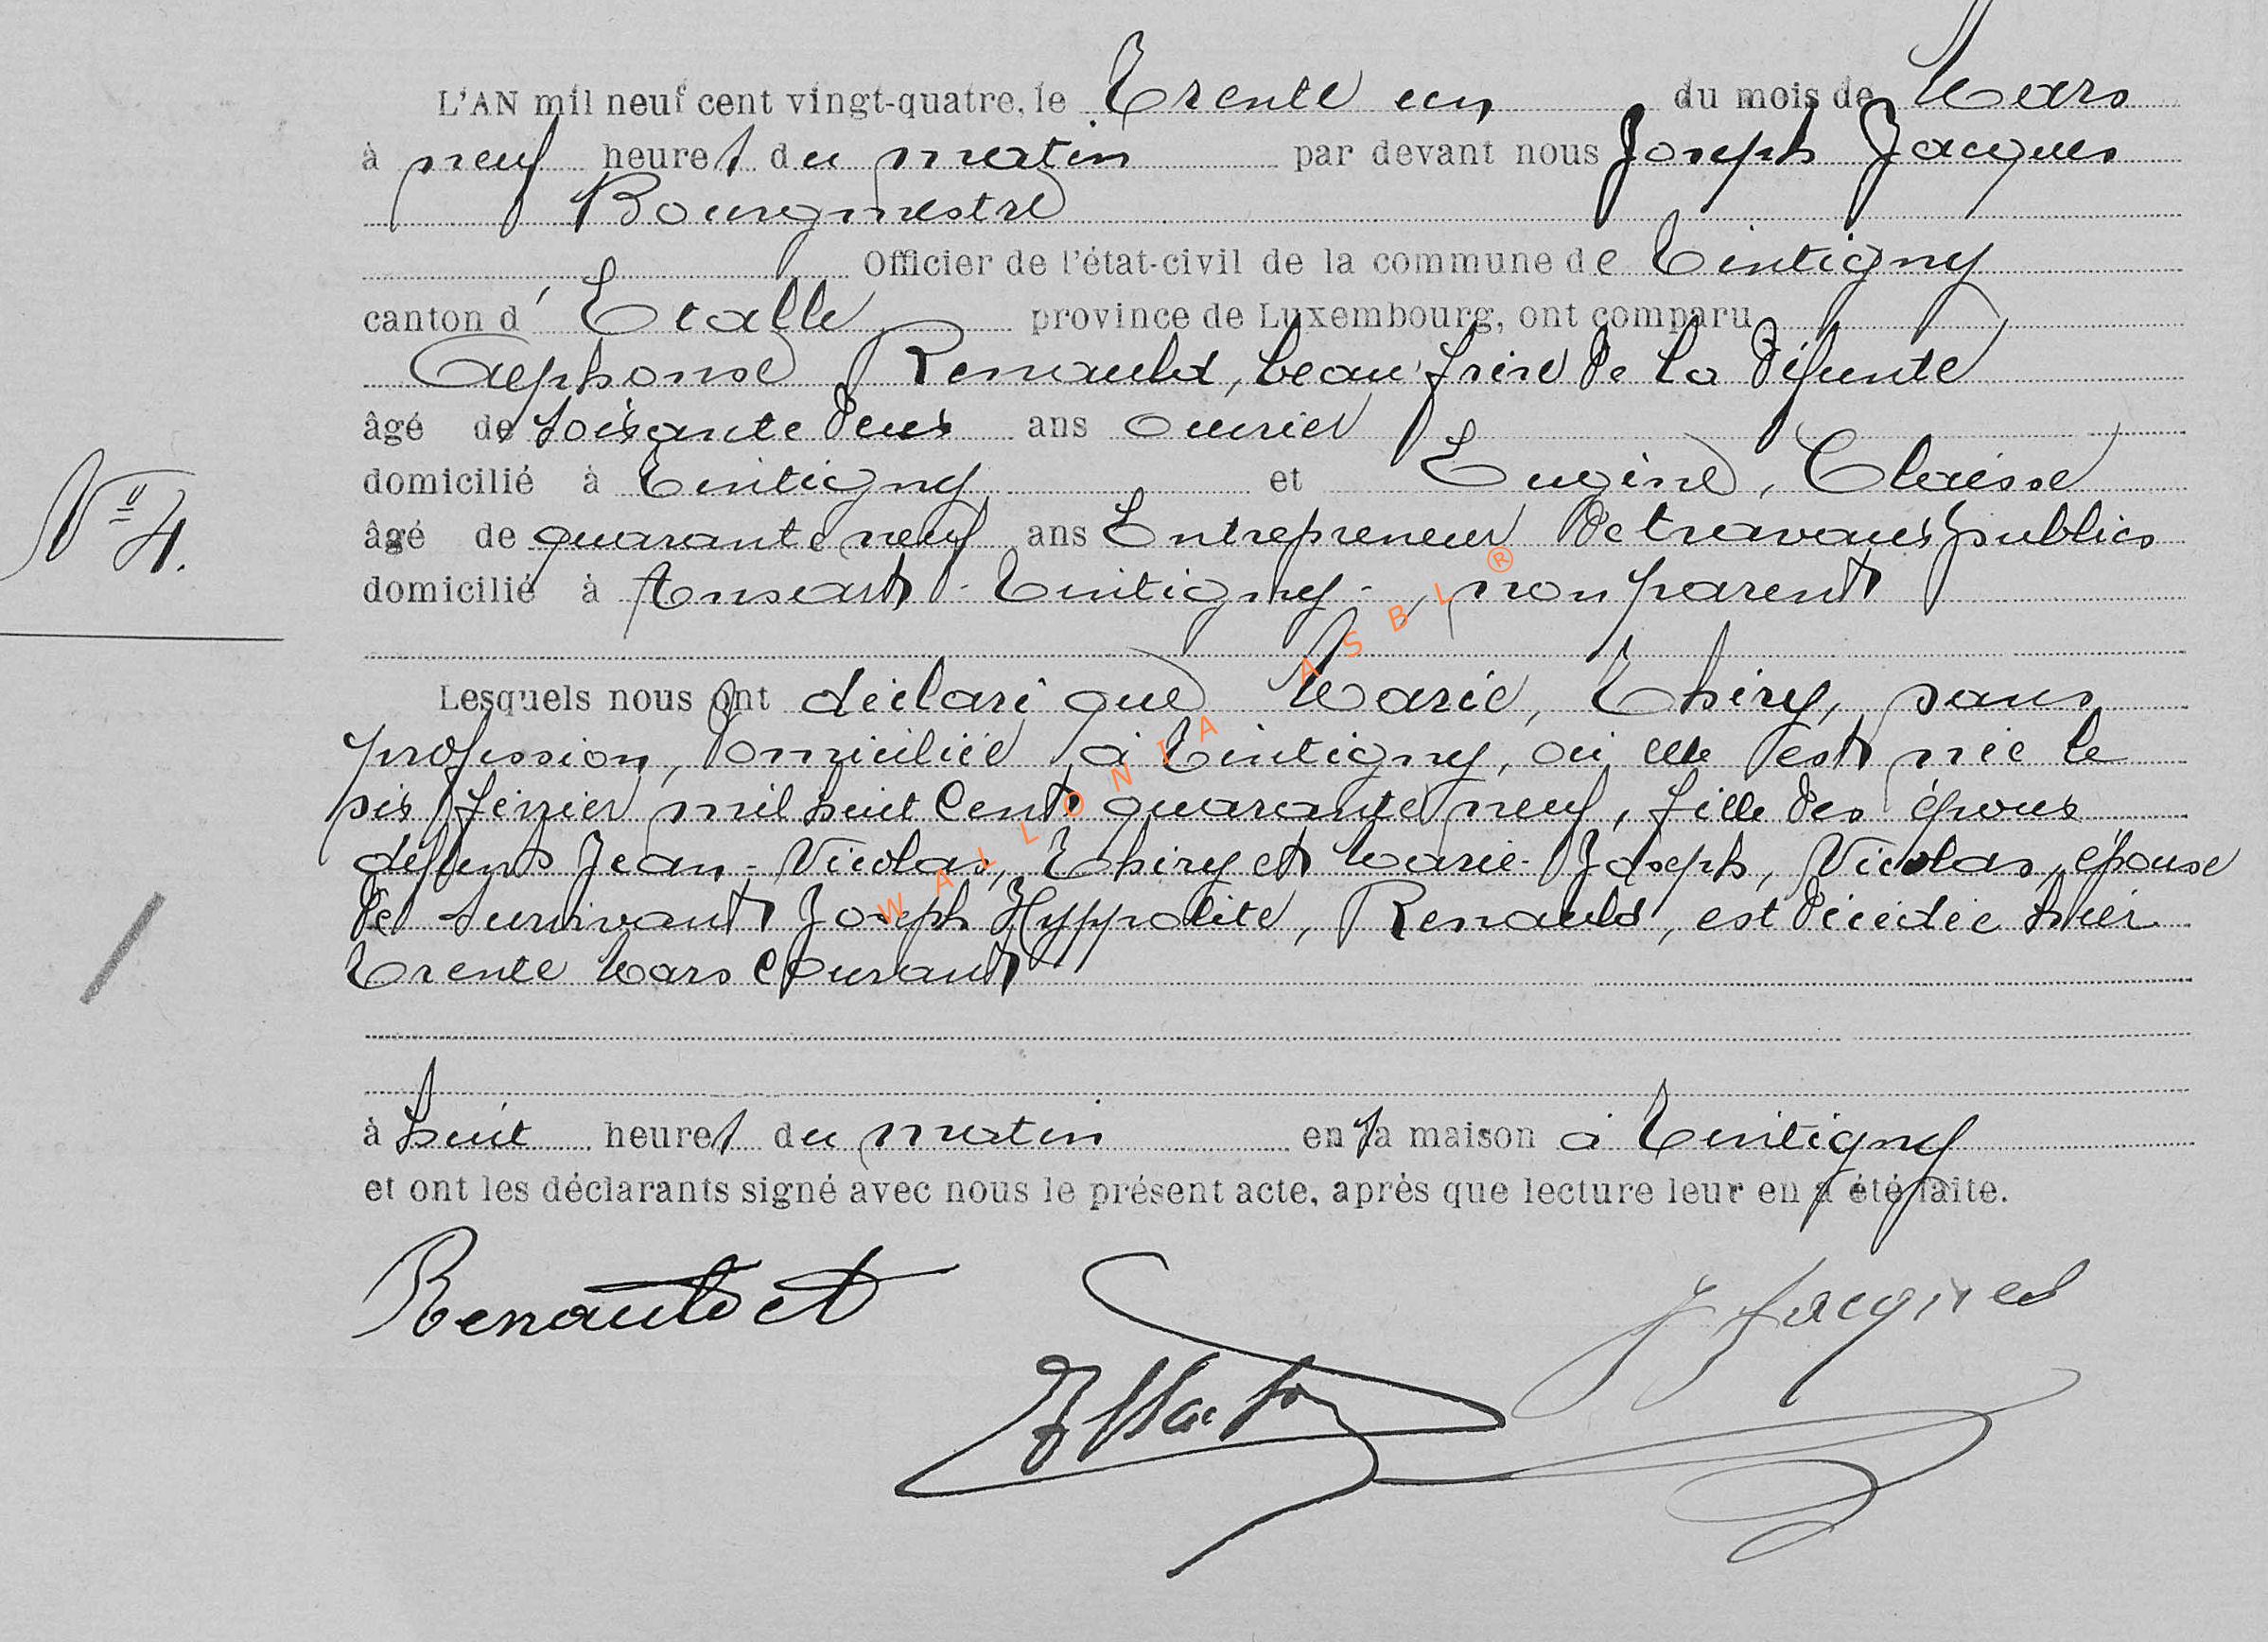 L'AN mil neuf cent vingt-quatre, le Trente un du mois de Mars
à neuf heures du matin par devant nous Joseph Jacques
Bourgmestre
Officier de l'état-civil de la commune de Tintigny
canton d'Etalle province de Luxembourg, ont comparu
Alphonse Renauld, beau frère de la défunte
âgé de soixante deux ans ouvrier
domicilié à Tintigny et Eugène, Claisse
N° 4.
âgé de quarante neuf ans Entrepreneur de travaux publics
domicilié à Ansart-Tintigny-, non parent
Lesquels nous ont déclaré que Marie, Thiry, sans
profession, domiciliée à Tintigny, où elle est née le
six février mil huit cent quarante neuf, fille des époux
défunts Jean-Nicolas, Thiry et Marie-Joseph, Nicolas, épouse
de survivant Joseph Hyppolite, Renauld, est décédée hier
trente Mars courant
à huit heures du matin en sa maison à Tintigny
et ont les déclarants signé avec nous le présent acte, après que lecture leur en a été faite.
J Jacques
WALLONIA ASBL ®